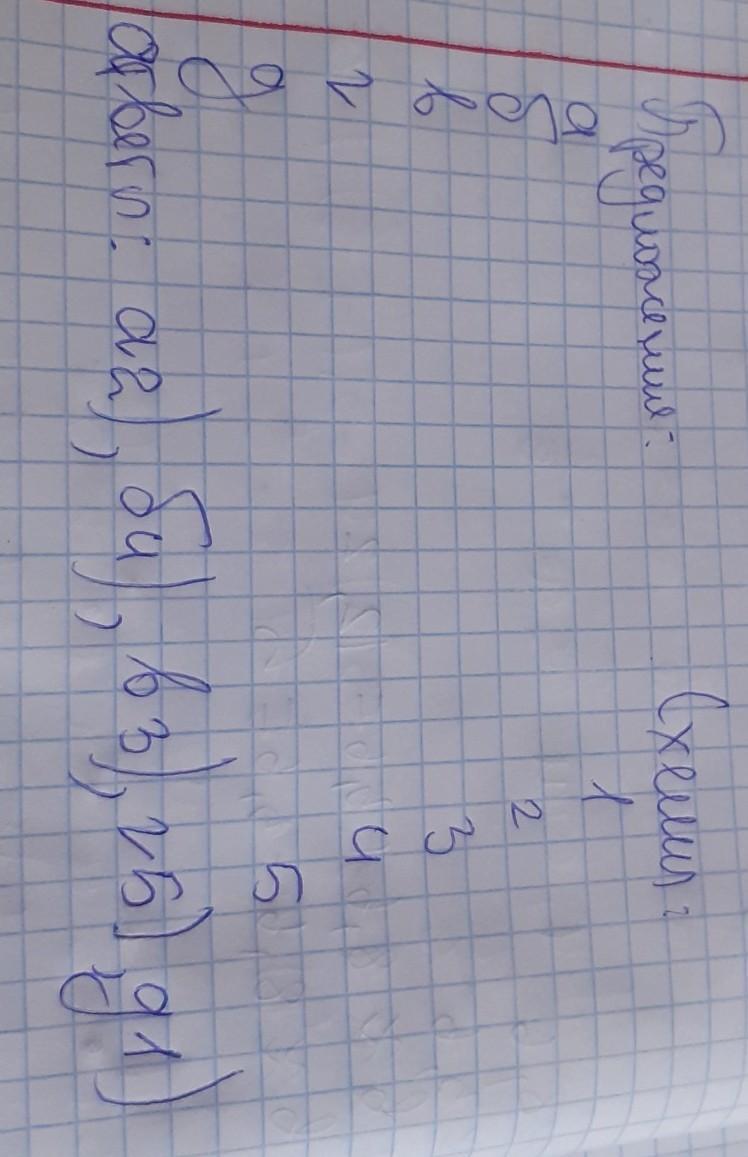 Предложения: Схемы:
а 1
б 2
в 3
г 4
д 5
Ответ: а2), б4), в3), г5), д1)